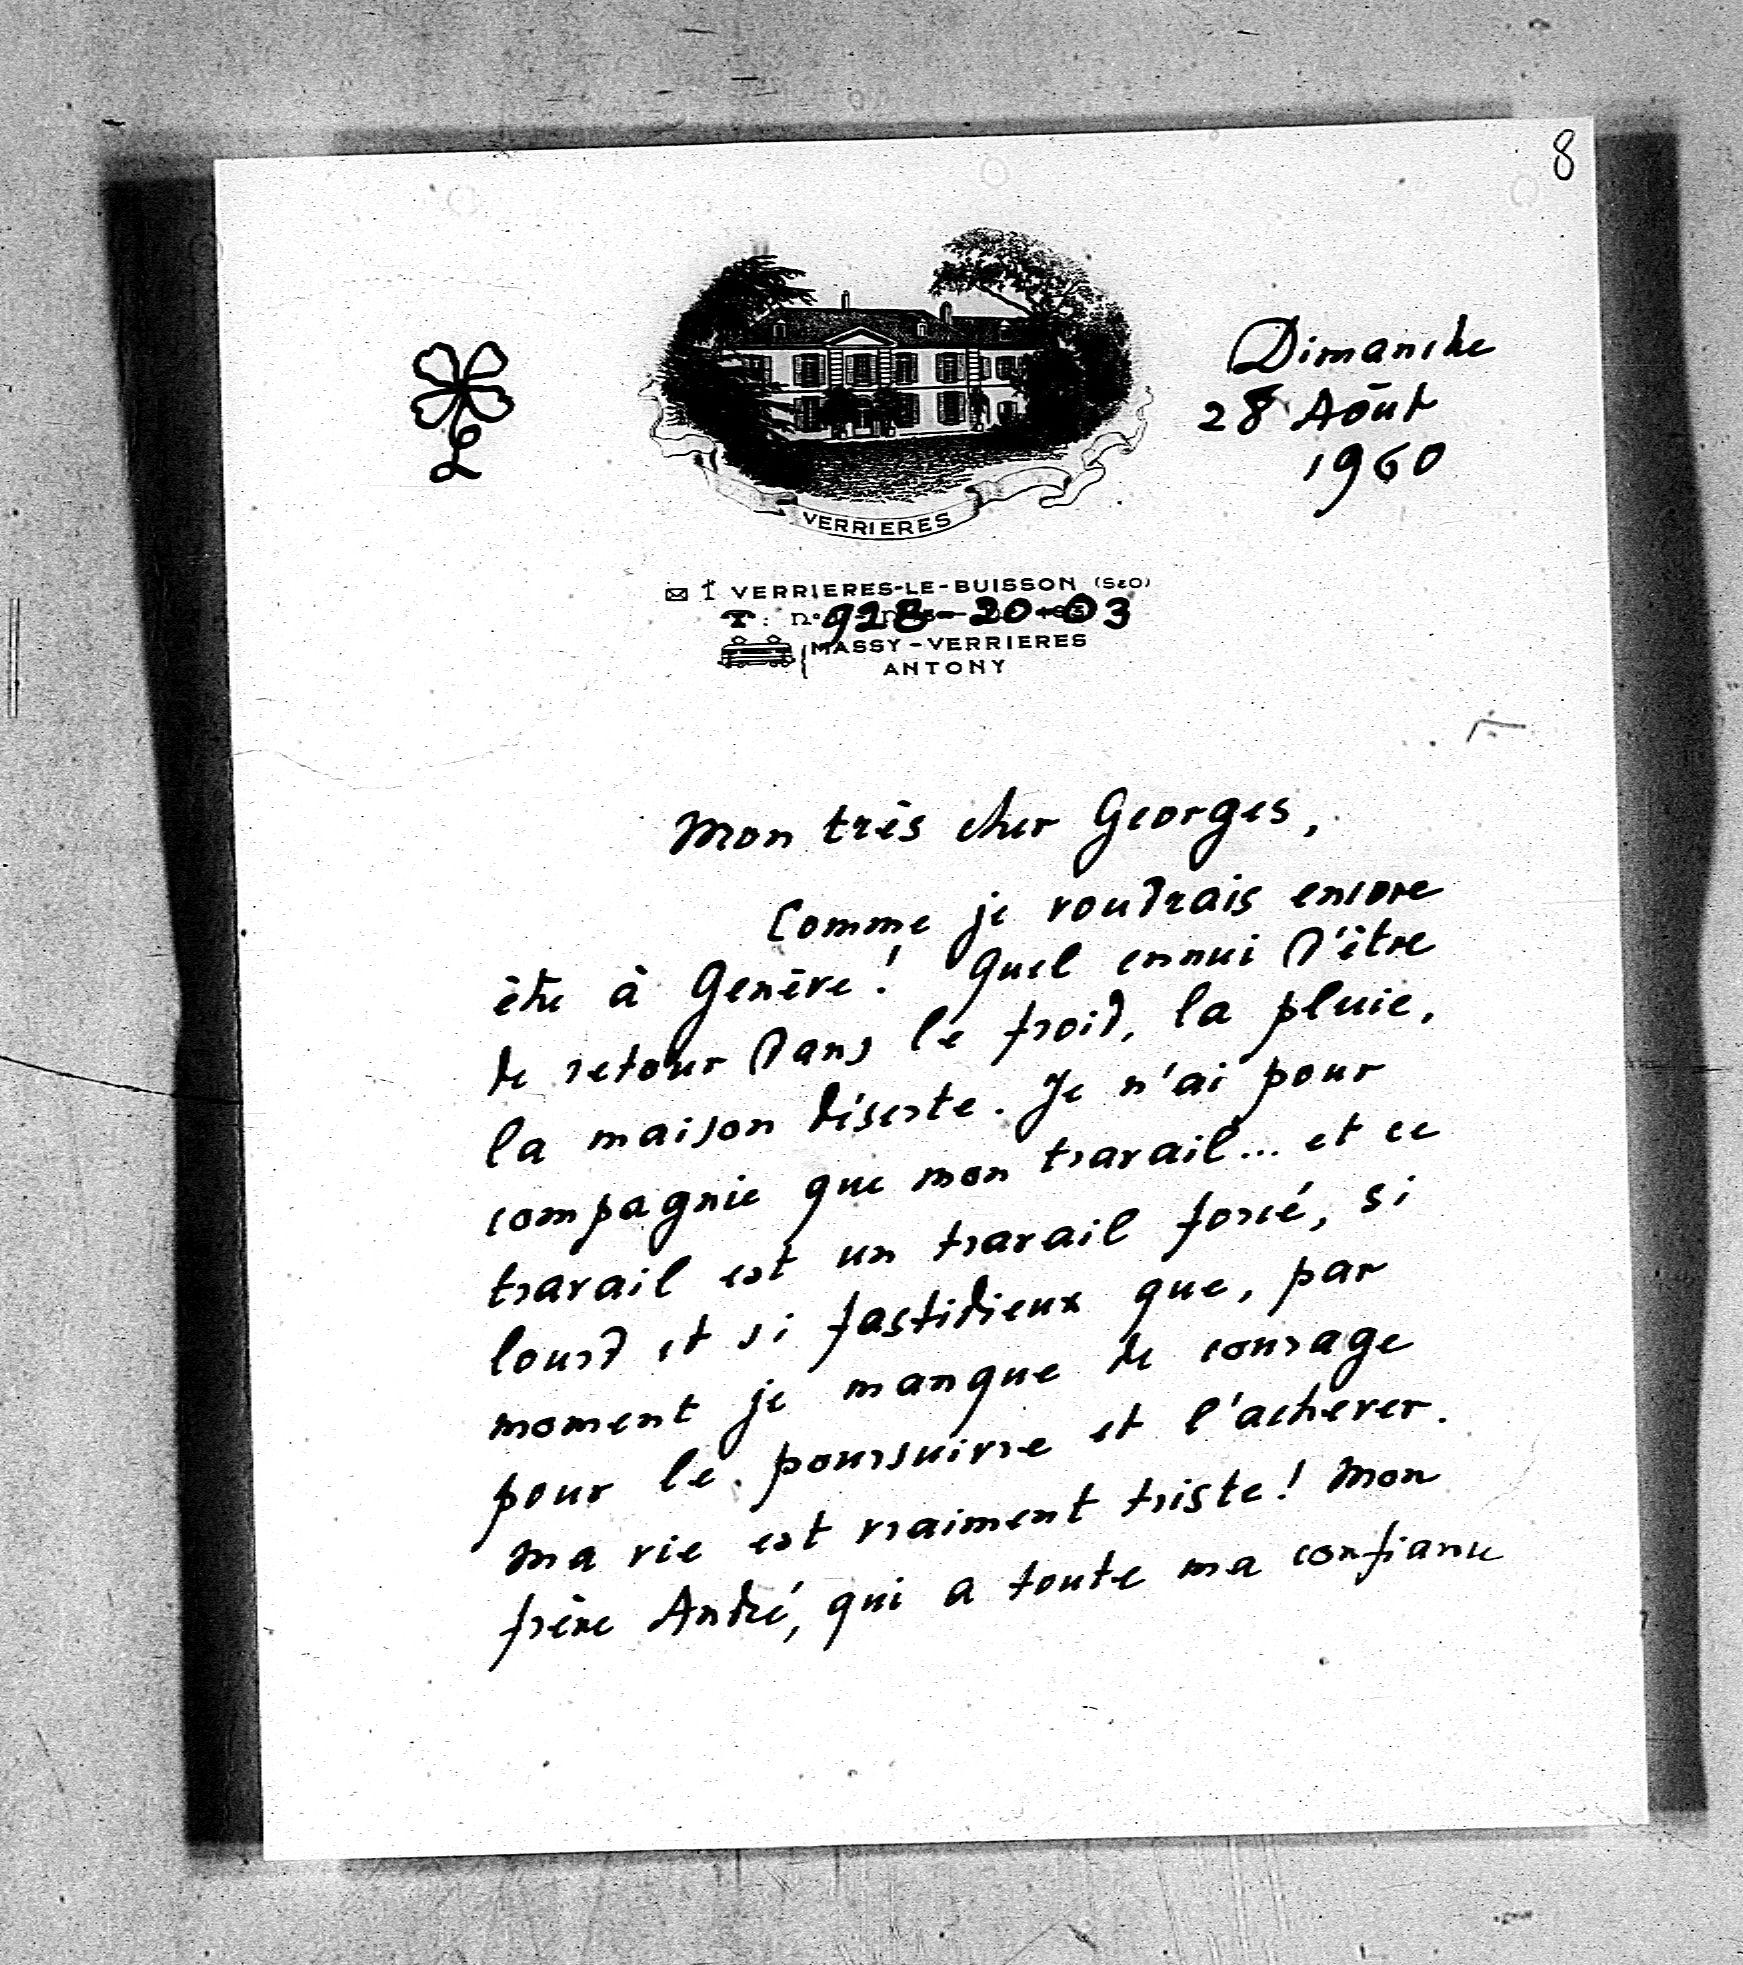 8
L
Dimanche
28 Août
1960
VERRIERES
VERRIERES-LE-BUISSON (S&O)
T: n° 928-20-03
MASSY-VERRIERES
ANTONY
Mon très cher Georges,
Comme je voudrais encore
être à Genève! Quel ennui d'être
de retour dans le froid, la pluie,
la maison déserte. Je n'ai pour
compagnie que mon travail... et ce
travail est un travail forcé, si
lourd et si fastidieux que, par
moment je manque de courage
pour le poursuivre et l'achever.
Ma vie est vraiment triste! Mon
frère André, qui a toute ma confiance